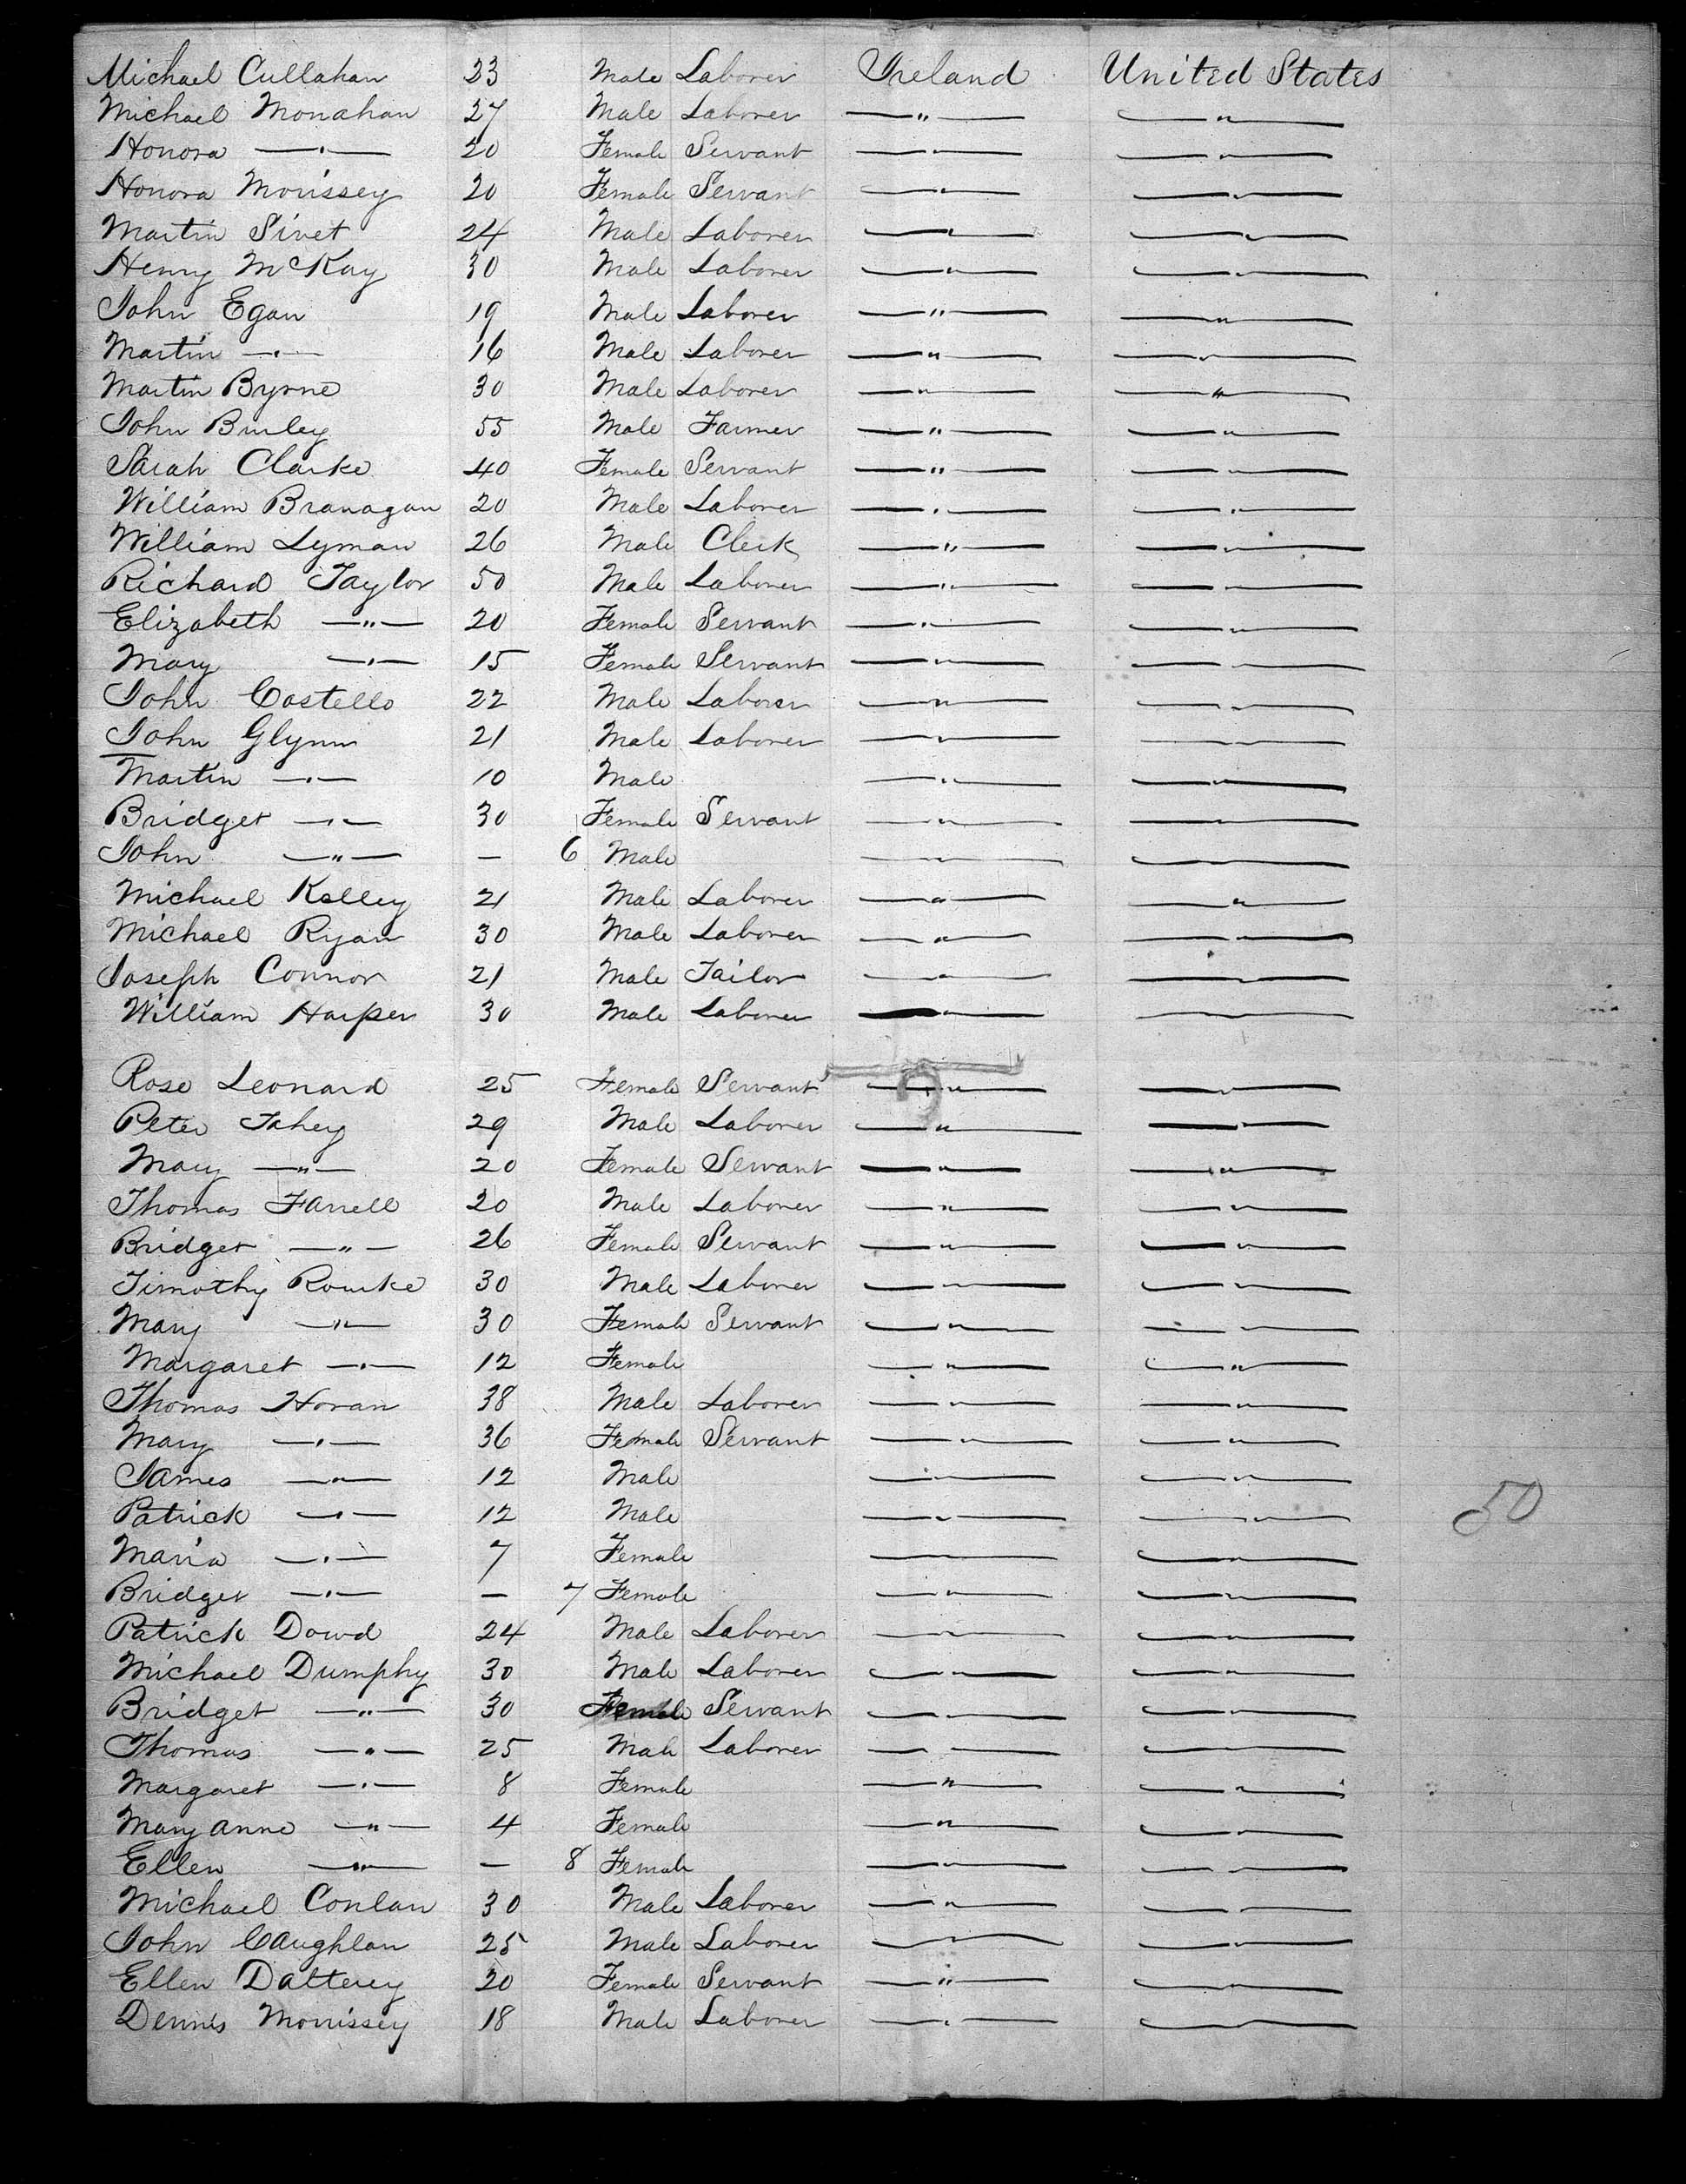 Michael Cullahan 23 Male Laborer Ireland United States
Michael Monahan 27 Male Laborer —"— —"—
Honora —"— 20 Female Servant —"— —"—
Honora Morissey 20 Female Servant —"— —"—
Martin Sivet 24 Male Laborer —"— —"—
Henry McKay 30 Male Laborer —"— —"—
John Egan 19 Male Laborer —"— —"—
Martin —"— 16 Male Laborer —"— —"—
Martin Byrne 30 Male Laborer —"— —"—
John Burley 55 Male Farmer —"— —"—
Sarah Clarke 40 Female Servant —"— —"—
William Branagan 20 Male Laborer —"— —"—
William Lyman 26 Male Clerk —"— —"—
Richard Taylor 50 Male Laborer —"— —"—
Elizabeth —"— 20 Female Servant —"— —"—
Mary —"— 15 Female Servant —"— —"—
John Costello 22 Male Laborer —"— —"—
John Glynn 21 Male Laborer —"— —"—
Martin —"— 10 Male —"— —"—
Bridget —"— 30 Female Servant —"— —"—
John —"— — 6 Male —"— —"—
Michael Kelley 21 Male Laborer —"— —"—
Michael Ryan 30 Male Laborer —"— —"—
Joseph Connor 21 Male Tailor —"— —"—
William Harper 30 Male Laborer —"— —"—
Rose Leonard 25 Female Servant —"— —"—
Peter Fahey 29 Male Laborer —"— —"—
Mary —"— 20 Female Servant —"— —"—
Thomas Farrell 20 Male Laborer —"— —"—
Bridget —"— 26 Female Servant —"— —"—
Timothy Rourke 30 Male Laborer —"— —"—
Mary —"— 30 Female Servant —"— —"—
Margaret —"— 12 Female —"— —"—
Thomas Horan 38 Male Laborer —"— —"—
Mary —"— 36 Female Servant —"— —"—
James —"— 12 Male —"— —"—
Patrick —"— 12 Male —"— —"— 50
Maria —"— 7 Female —"— —"—
Bridget —"— — 7 Female —"— —"—
Patrick Dowd 24 Male Laborer —"— —"—
Michael Dumphy 30 Male Laborer —"— —"—
Bridget —"— 30 Female Servant —"— —"—
Thomas —"— 25 Male Laborer —"— —"—
Margaret —"— 8 Female —"— —"—
Mary Anne —"— 4 Female —"— —"—
Ellen —"— — 8 Female —"— —"—
Michael Conlan 30 Male Laborer —"— —"—
John Caughlan 25 Male Laborer —"— —"—
Ellen Datterey 20 Female Servant —"— —"—
Dennis Morrissey 18 Male Laborer —"— —"—